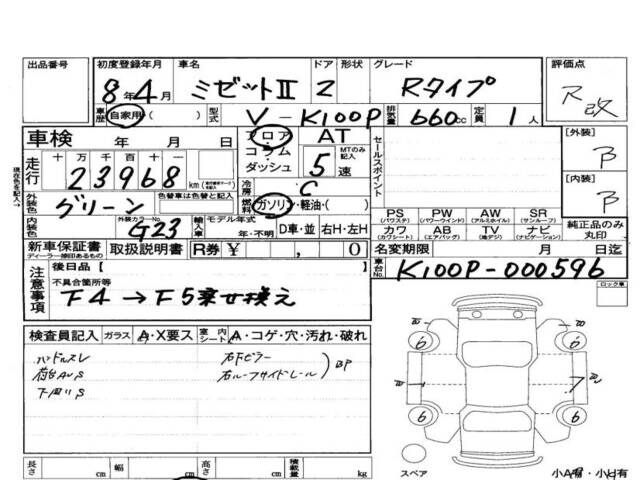 出品番号 初度登録年月 車名 ドア 形状 グレード 評価点
8年 4月 ミゼットII 2 Rタイプ R改
車歴 自家用( ) 型式 V-K100P 排気量 660cc 定員 1人
車検 年 月 日 フロア AT 【外装】
コラム MTのみ記入 セールスポイント B
ダッシュ 5速
走行 十万千百十一
23968 km
現在色を記入→ 冷房 C 【内装】
外装色 グリーン 色替車は色替と記入 燃料 ガソリン・軽油・( ) B
PS PW AW SR 純正品のみ丸印
(パワステ) (パワーウインド) (アルミホイル) (サンルーフ)
内装色 外装カラーNo. G23 輸入車 モデル年式 年・不明 D車・並 右H・左H カワ AB TV ナビ
(カワシート) (エアバッグ) (地デジ) (ナビゲーション)
新車保証書 取扱説明書 R券 ¥ , 0 名変期限 月 日迄
ディーラー捺印あるもの
注意事項 後日品【 車台No. K100P-000596
不具合箇所等 ロック車
F4→F5乗せ換え
検査員記入 ガラス A・X要ス 室内シート A・コゲ・穴・汚れ・破れ
ハンドルスレ 右下ピラー BP
荷台AUS 右ルーフサイドレール
下周りS
6 6
6 6
スペア 小A有・小U有
長さ cm 幅 cm 高さ cm 積載量 kg